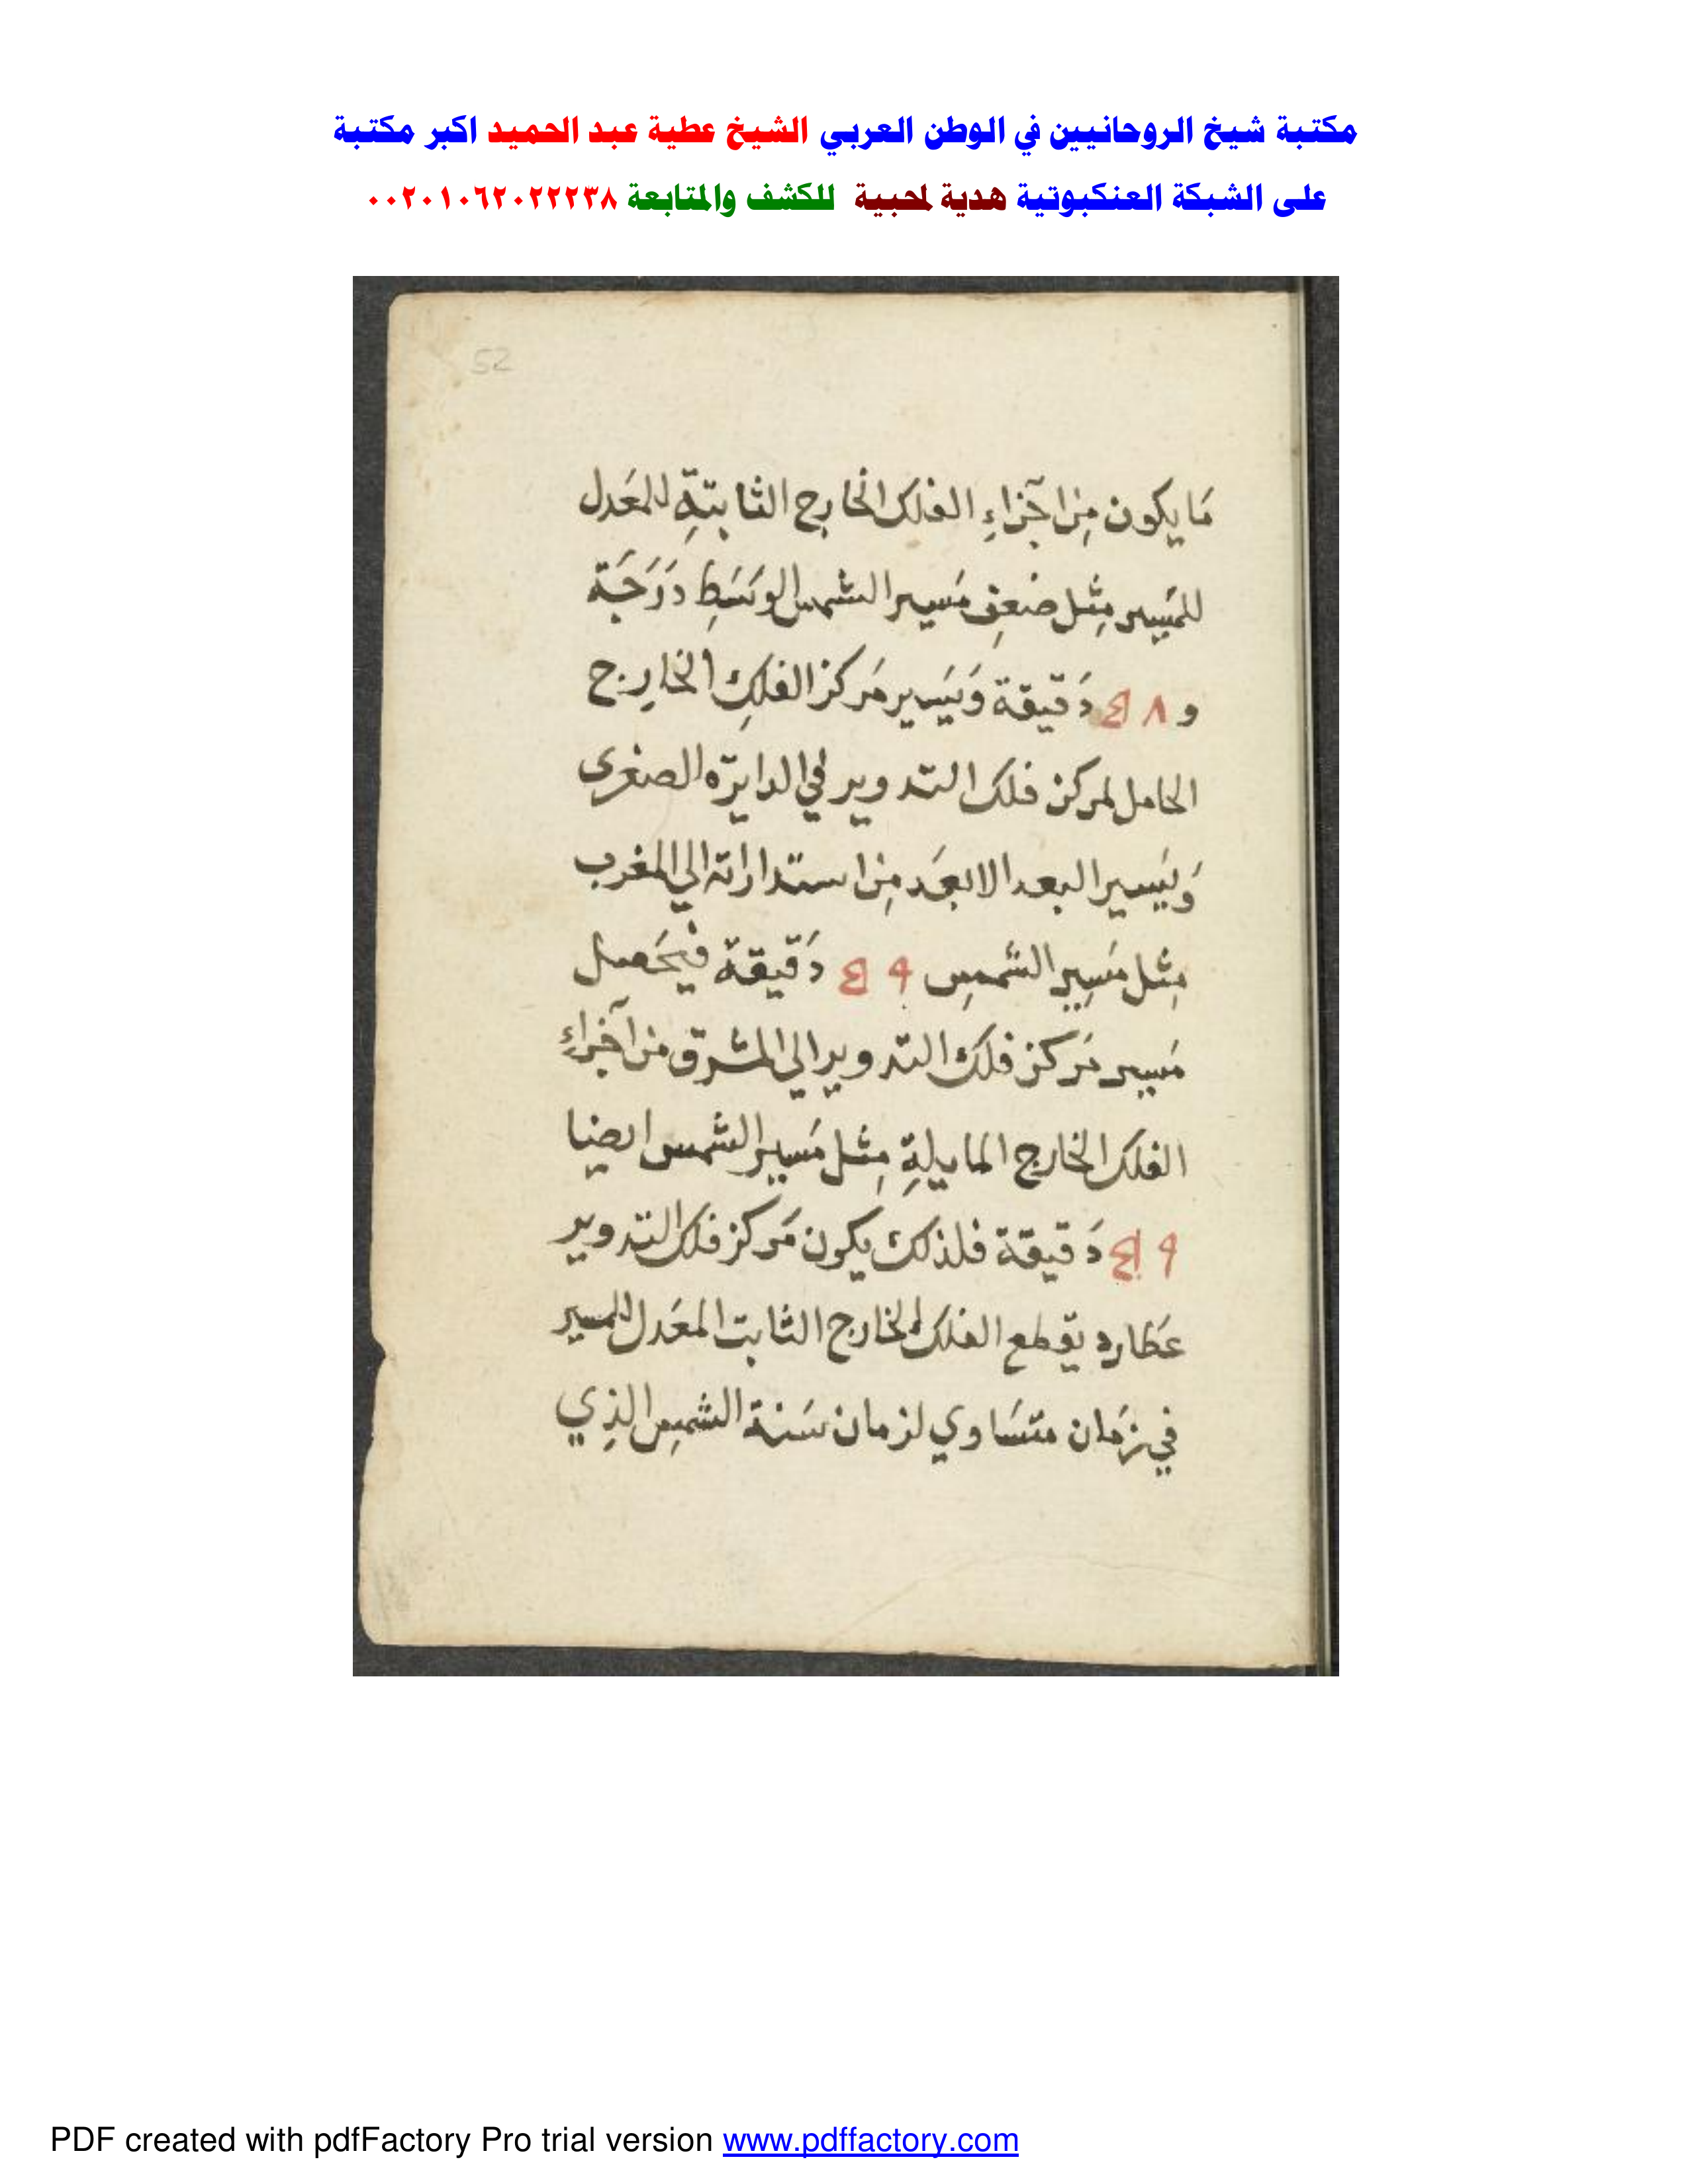 مكتبة شيخ الروحانيين في الوطن العربي الشيخ عطية عبد الحميد اكبر مكتبة
على الشبكة العنكبوتية هدية لمحبيه للكشف والمتابعة ٠٠٢٠١٠٦٢٠٢٢٢٣٨
52
مَا يكون مِن اجزاءِ الفلك الخارج الثابتةِ للمعَدل
للمَسِير مِثل ضعفِ مَسير الشمس الوسَطِ دَرَجَة
و دَقيقة وَيَسير مَركز الفلكِ الخارِج
الحامل لمركز فلك التدوير في الدايرَه الصغرى
وَيَسير البعد الابعَد مِن استداراته الي المغرب
مِثل مَسِير الشمسِ دَقيقة فيحَصل
مَسير مَركز فلك التدوير الي المشرق من اجزاءِ
الفلك الخارج المايلةِ مِثل مَسير الشمس ايضا
دَقيقة فلذلك يكون مَركز فلك التدوير
عَطارد يقطع الفلك الخارج الثابت المعَدل للمسير
في زمَان متسَاوي لزمان سَنة الشمسِ الذِي
PDF created with pdfFactory Pro trial version www.pdffactory.com